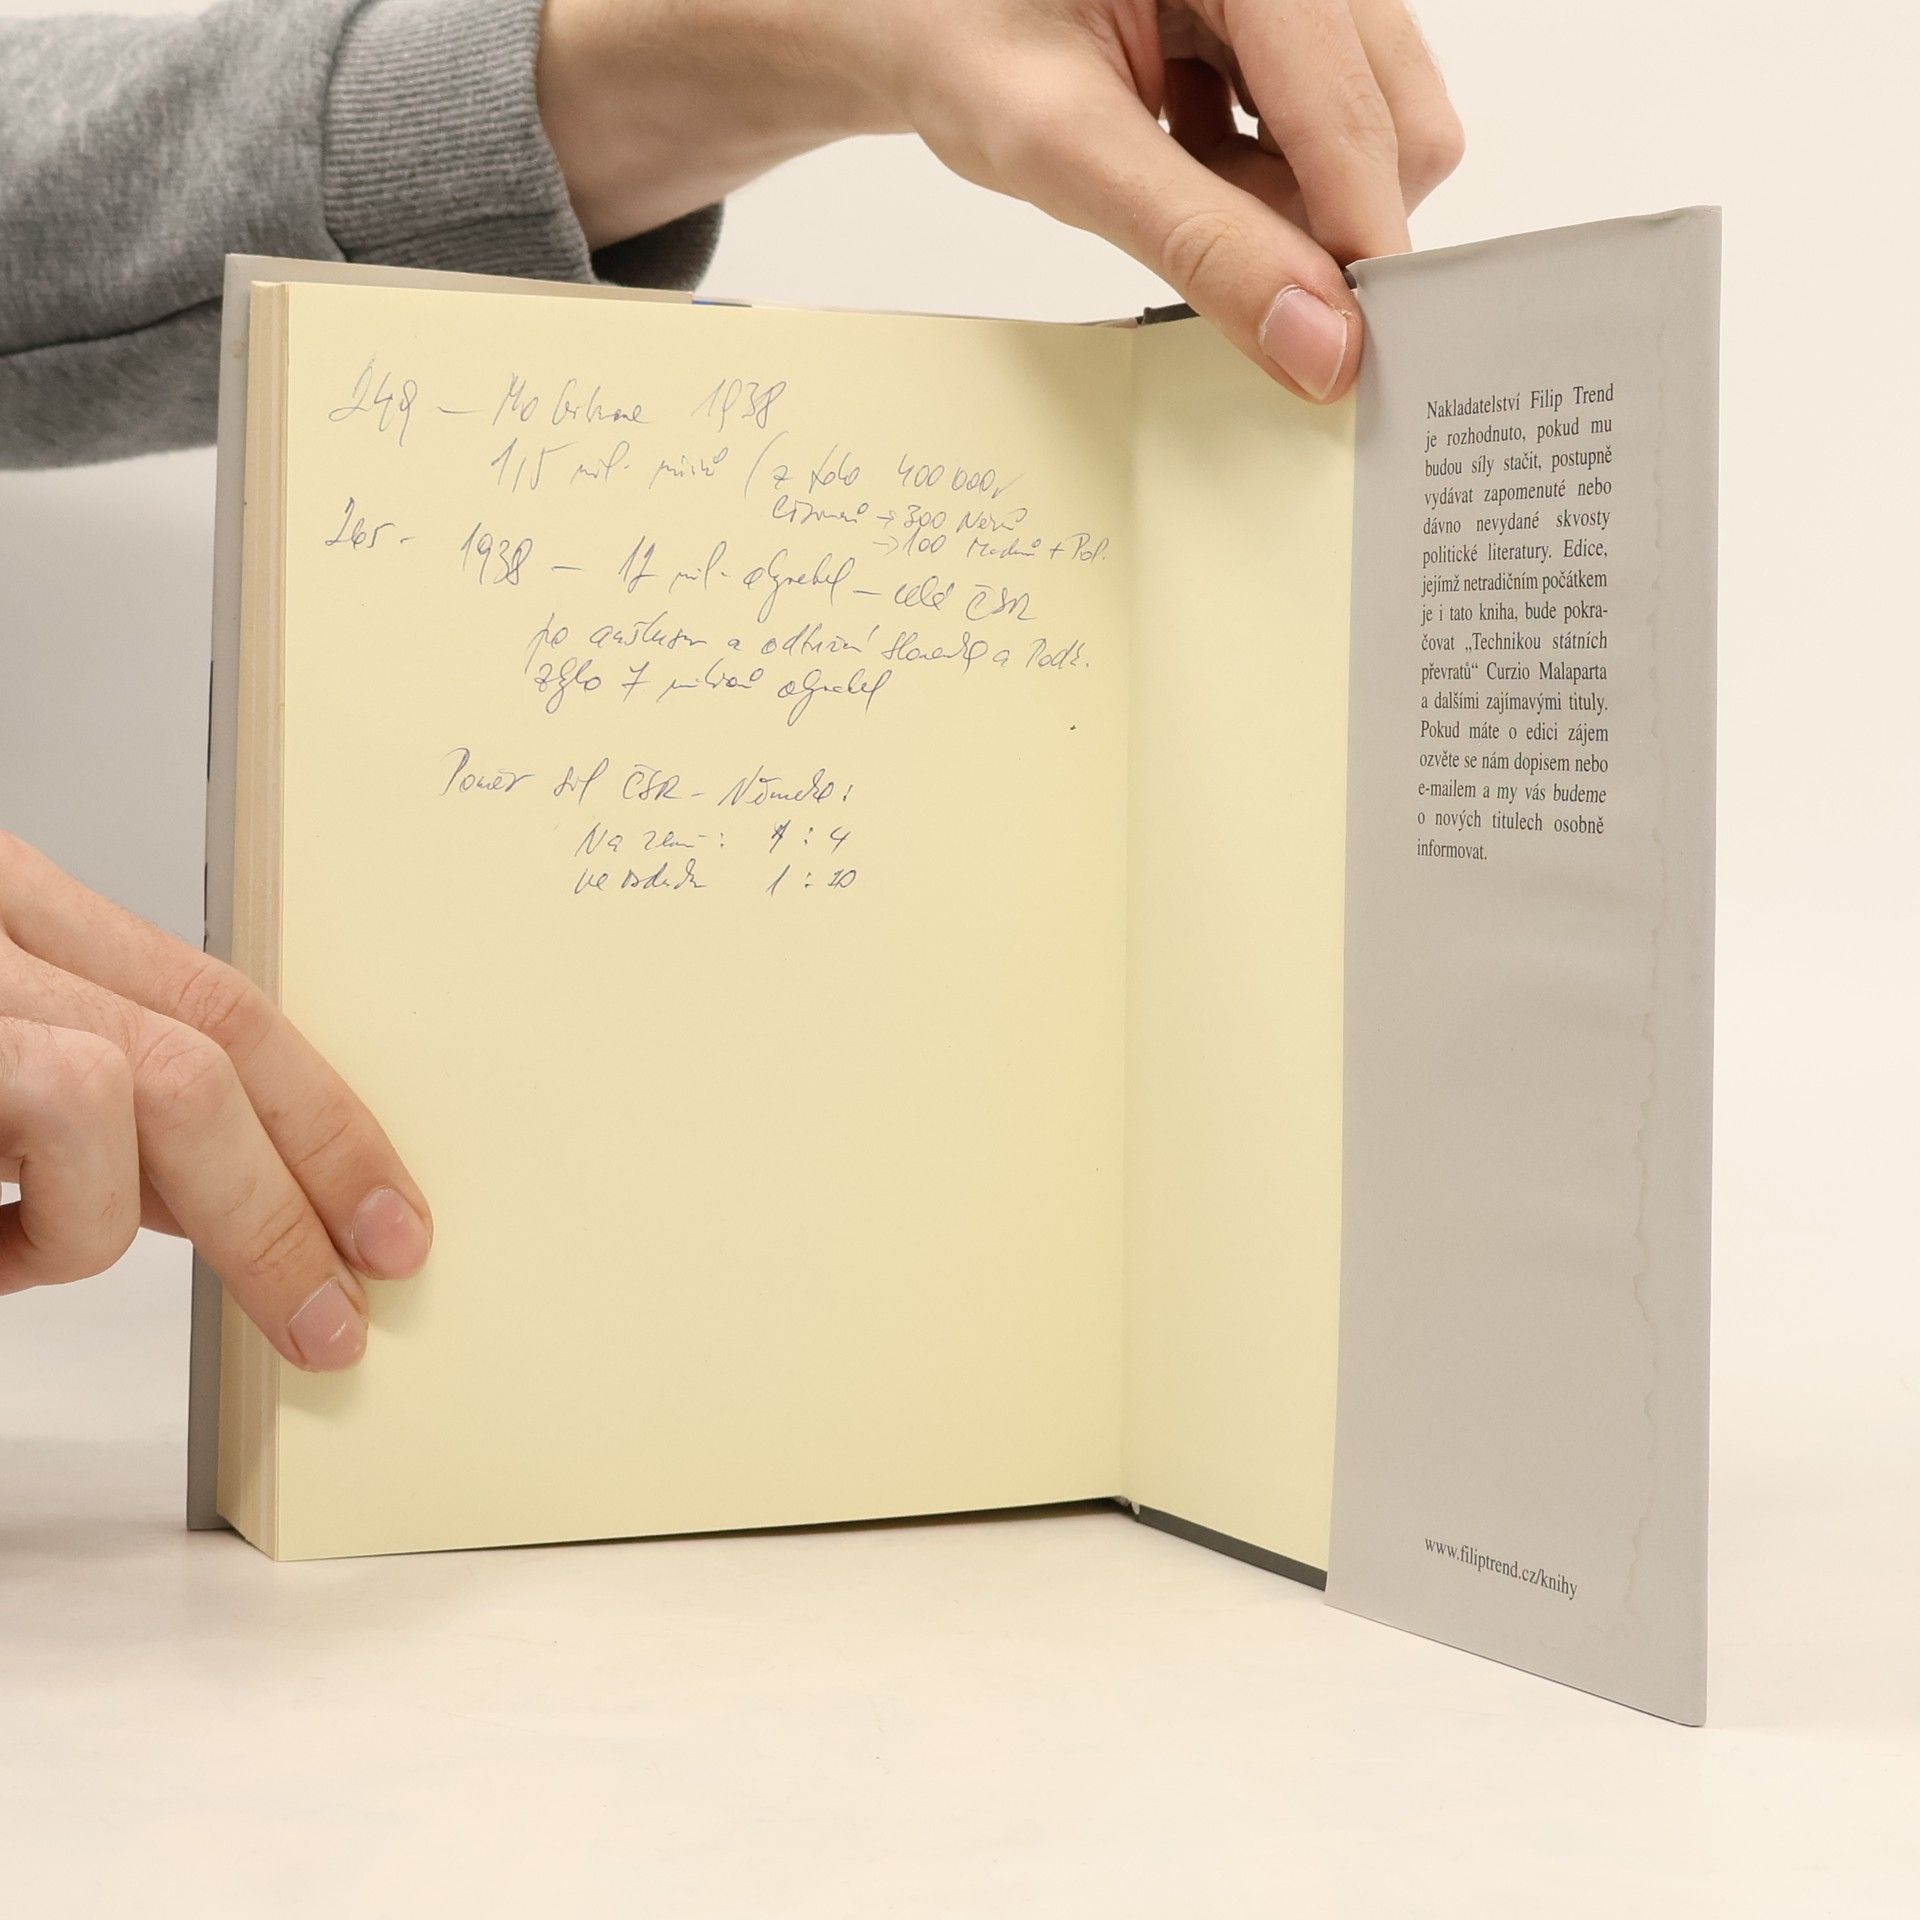 249 – Mobilizace 1938
1,5 mil. mužů (z toho 400 000
cizinců → 300 Němců
→ 100 Maďarů + Pol.
265 - 1938 – obyvatel – celá ČSR
po a odtržení Slovenska a Podk.
zbylo 7 milionů obyvatel
Poměr sil ČSR – Německo:
Na zemi: 1 : 4
ve vzduchu 1 : 10
Nakladatelství Filip Trend
je rozhodnuto, pokud mu
budou síly stačit, postupně
vydávat zapomenuté nebo
dávno nevydané skvosty
politické literatury. Edice,
jejímž netradičním počátkem
je i tato kniha, bude pokra-
čovat „Technikou státních
převratů“ Curzio Malaparta
a dalšími zajímavými tituly.
Pokud máte o edici zájem
ozvěte se nám dopisem nebo
e-mailem a my vás budeme
o nových titulech osobně
informovat.
www.filiptrend.cz/knihy